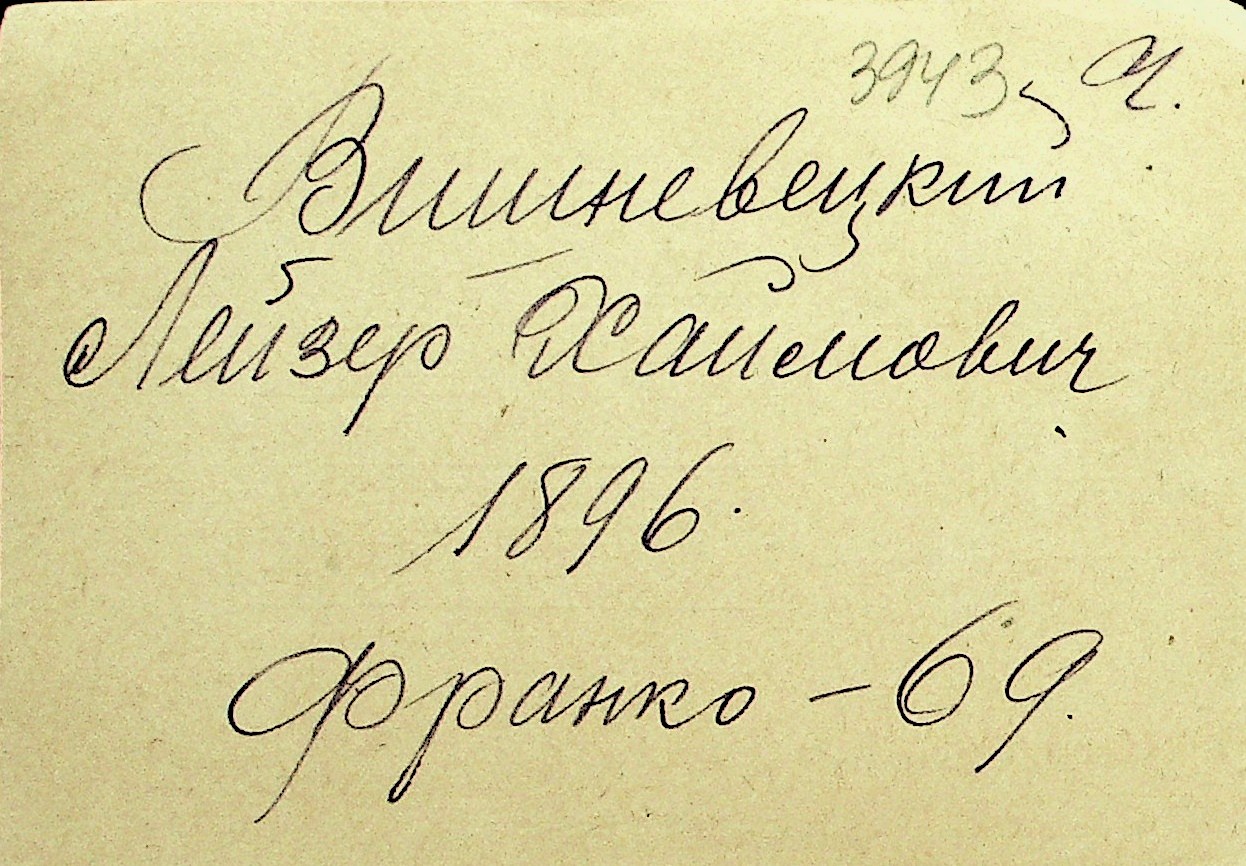 3943 Ч.
Вишневецкий
Лейзер Хаймович
1896.
Франко - 69.